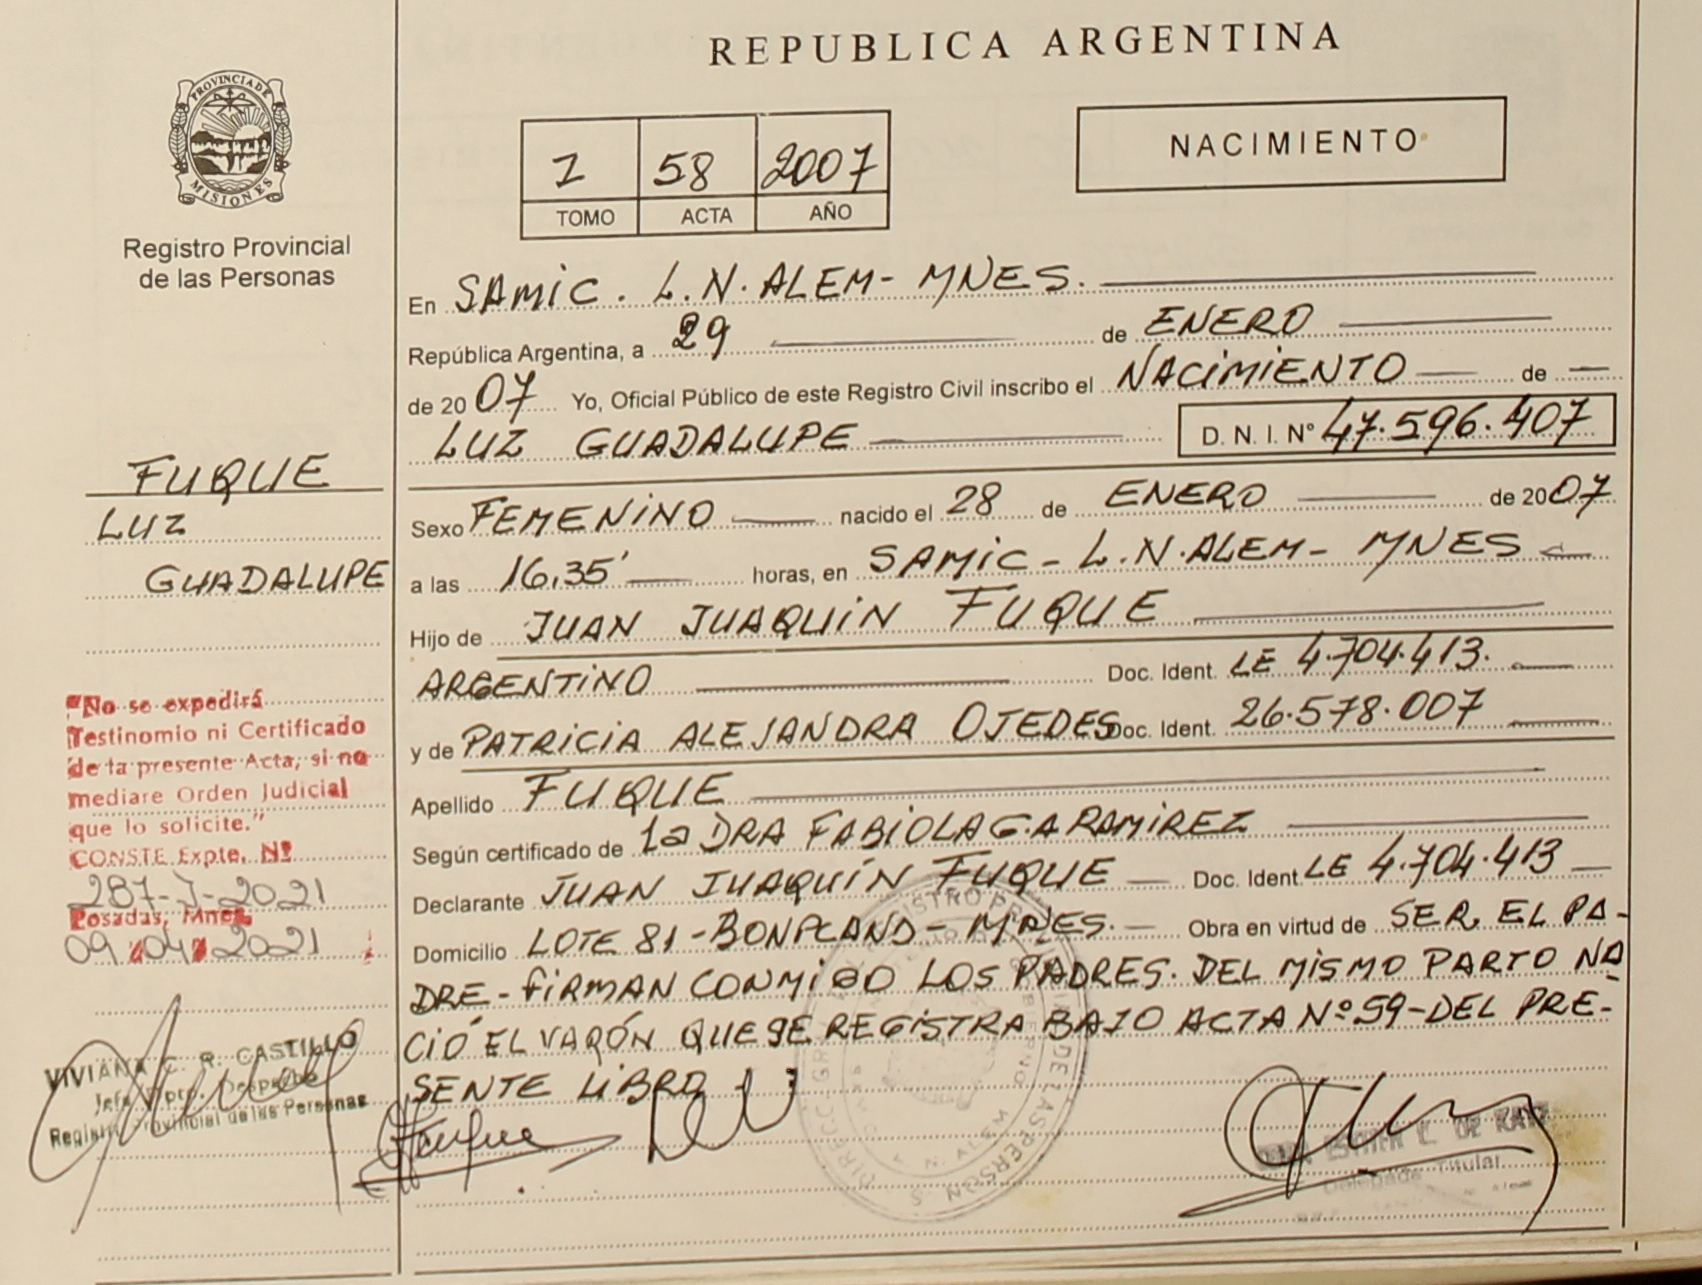 REPUBLICA ARGENTINA
PROVINCIA DE
MISIONES
Registro Provincial
de las Personas
I 58 2007
TOMO ACTA AÑO
NACIMIENTO
En SAMIC. L.N. ALEM - MNES.
República Argentina, a 29 de ENERO
de 2007 Yo, Oficial Público de este Registro Civil inscribo el NACIMIENTO de
LUZ GUADALUPE D. N. I. N° 47.596.407
FUQUE
LUZ
GUADALUPE
Sexo FEMENINO nacido el 28 de ENERO de 2007
a las 16,35' horas, en SAMIC - L.N. ALEM - MNES
Hijo de JUAN JUAQUIN FUQUE
ARGENTINO Doc. Ident. LE 4.704.413.
y de PATRICIA ALEJANDRA OJEDES Doc. Ident. 26.578.007
Apellido FUQUE
Según certificado de la DRA FABIOLA G.A RAMIREZ
Declarante JUAN JUAQUÍN FUQUE Doc. Ident. LE 4.704.413
Domicilio LOTE 81 - BONPLAND - MNES. Obra en virtud de SER EL PA-
DRE - FIRMAN CONMIGO LOS PADRES. DEL MISMO PARTO NA
CIÓ EL VARÓN QUE SE REGISTRA BAJO ACTA Nº 59 - DEL PRE-
SENTE LIBRO
"No se expedirá
Testinomio ni Certificado
de la presente Acta, si no
mediare Orden Judicial
que lo solicite."
CONSTE Expte. Nº
287-J-2021
Posadas, Mnes
09 04 2021
VIVIANA C. R. CASTILLO
Jefa Dpto. Despacho
Registro Provincial de las Personas
Fuque
ESTHER C. DE KATZ
Delegada Titular